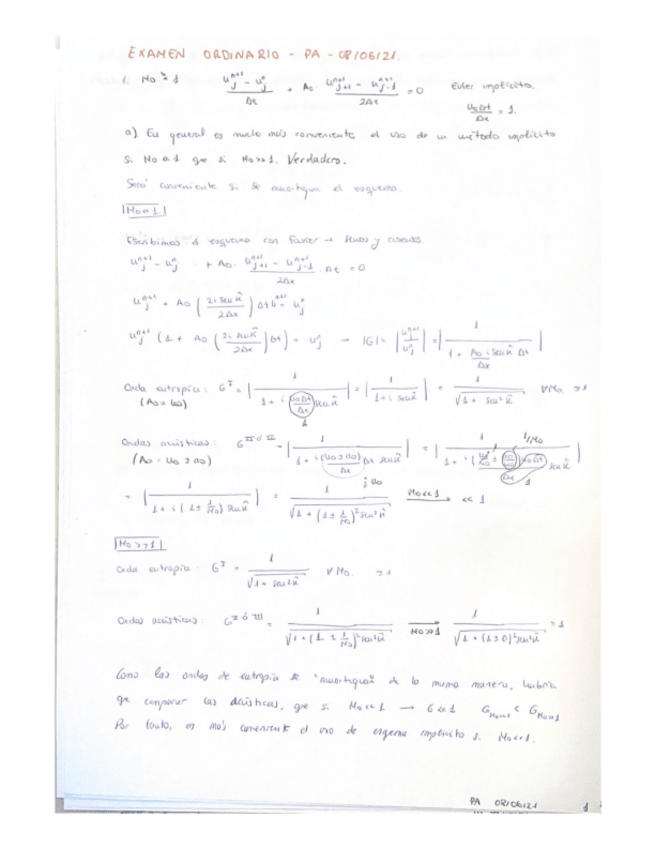 EXAMEN ORDINARIO - PA - 08/06/21.
1. M₀ ≷ 1 (u_j^{n+1} - u_j^n)/Δt + A₀ · (u_{j+1}^{n+1} - u_{j-1}^{n+1})/(2Δx) = 0 Euler implícito.
(u₀Δt)/Δx = 1.
a) En general es mucho más conveniente el uso de un método implícito
si M₀ << 1 que si M₀ >> 1. Verdadero.
Será conveniente si se amortigua el esquema.
|M₀ << 1|
Escribimos el esquema con Fourier → senos y cosenos.
u_j^{n+1} - u_j^n + A₀ · (u_{j+1}^{n+1} - u_{j-1}^{n+1})/(2Δx) · Δt = 0
u_j^{n+1} + A₀ ( 2i sen x̂ / 2Δx ) Δt u^{n+1} = u_j^n
u_j^{n+1} (1 + A₀ ( 2i sen x̂ / 2Δx ) Δt) = u_j^n → |G| = | u_j^{n+1} / u_j^n | = | 1 / (1 + (A₀ i sen x̂ Δt)/Δx) |
Onda entropía: G^I = | 1 / (1 + i (u₀Δt/Δx) sen x̂) | = | 1 / (1 + i sen x̂) | = 1 / √(1 + sen² x̂) ∀M₀. ≈ 1
(A₀ = u₀) 1
Ondas acústicas: G^{II ó III} = | 1 / (1 + i (u₀ ± a₀)/Δx Δt sen x̂) | = | 1 / (1 + i (u₀/u₀ ± a₀/u₀) u₀Δt/Δx sen x̂) | 1/M₀
(A₀ = u₀ ± a₀) 1
= | 1 / (1 + i (1 ± 1/M₀) sen x̂) | = 1 / √(1 + (1 ± 1/M₀)² sen² x̂) M₀ << 1 → << 1
|M₀ >> 1|
Onda entropía: G^I = 1 / √(1 + sen² x̂) ∀ M₀. ≈ 1
Ondas acústicas: G^{II ó III} = 1 / √(1 + (1 ± 1/M₀)² sen² x̂) M₀ >> 1 → 1 / √(1 + (1 ± 0)² sen² x̂) ≈ 1
Como las ondas de entropía se "amortiguan" de la misma manera, habría
que comparar las acústicas, que si M₀ << 1 → G << 1 G_{M₀<<1} < G_{M₀>>1}
Por tanto, es más conveniente el uso de esquema implícito si M₀ << 1.
PA 08/06/21 1